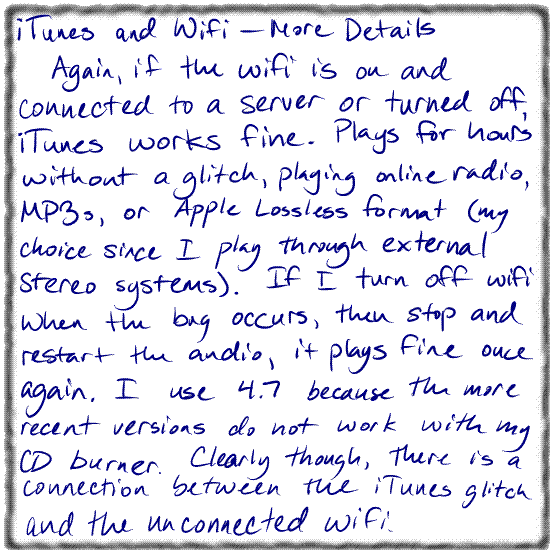 iTunes and Wifi – More Details
Again, if the wifi is on and
connected to a server or turned off,
iTunes works fine. Plays for hours
without a glitch, playing online radio,
MP3s, or Apple Lossless format (my
choice since I play through external
Stereo systems). If I turn off wifi
when the bug occurs, then stop and
restart the audio, it plays fine once
again. I use 4.7 because the more
recent versions do not work with my
CD burner. Clearly though, there is a
connection between the iTunes glitch
and the unconnected wifi.